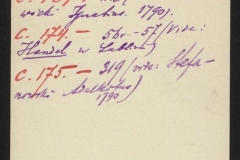 wicki Ignatius. 1790).
C. 174. — 56v. - 57 (vide:
Handel w Lublinie)
C. 175. — 319 (vide: Stefa-
nowski
1790)